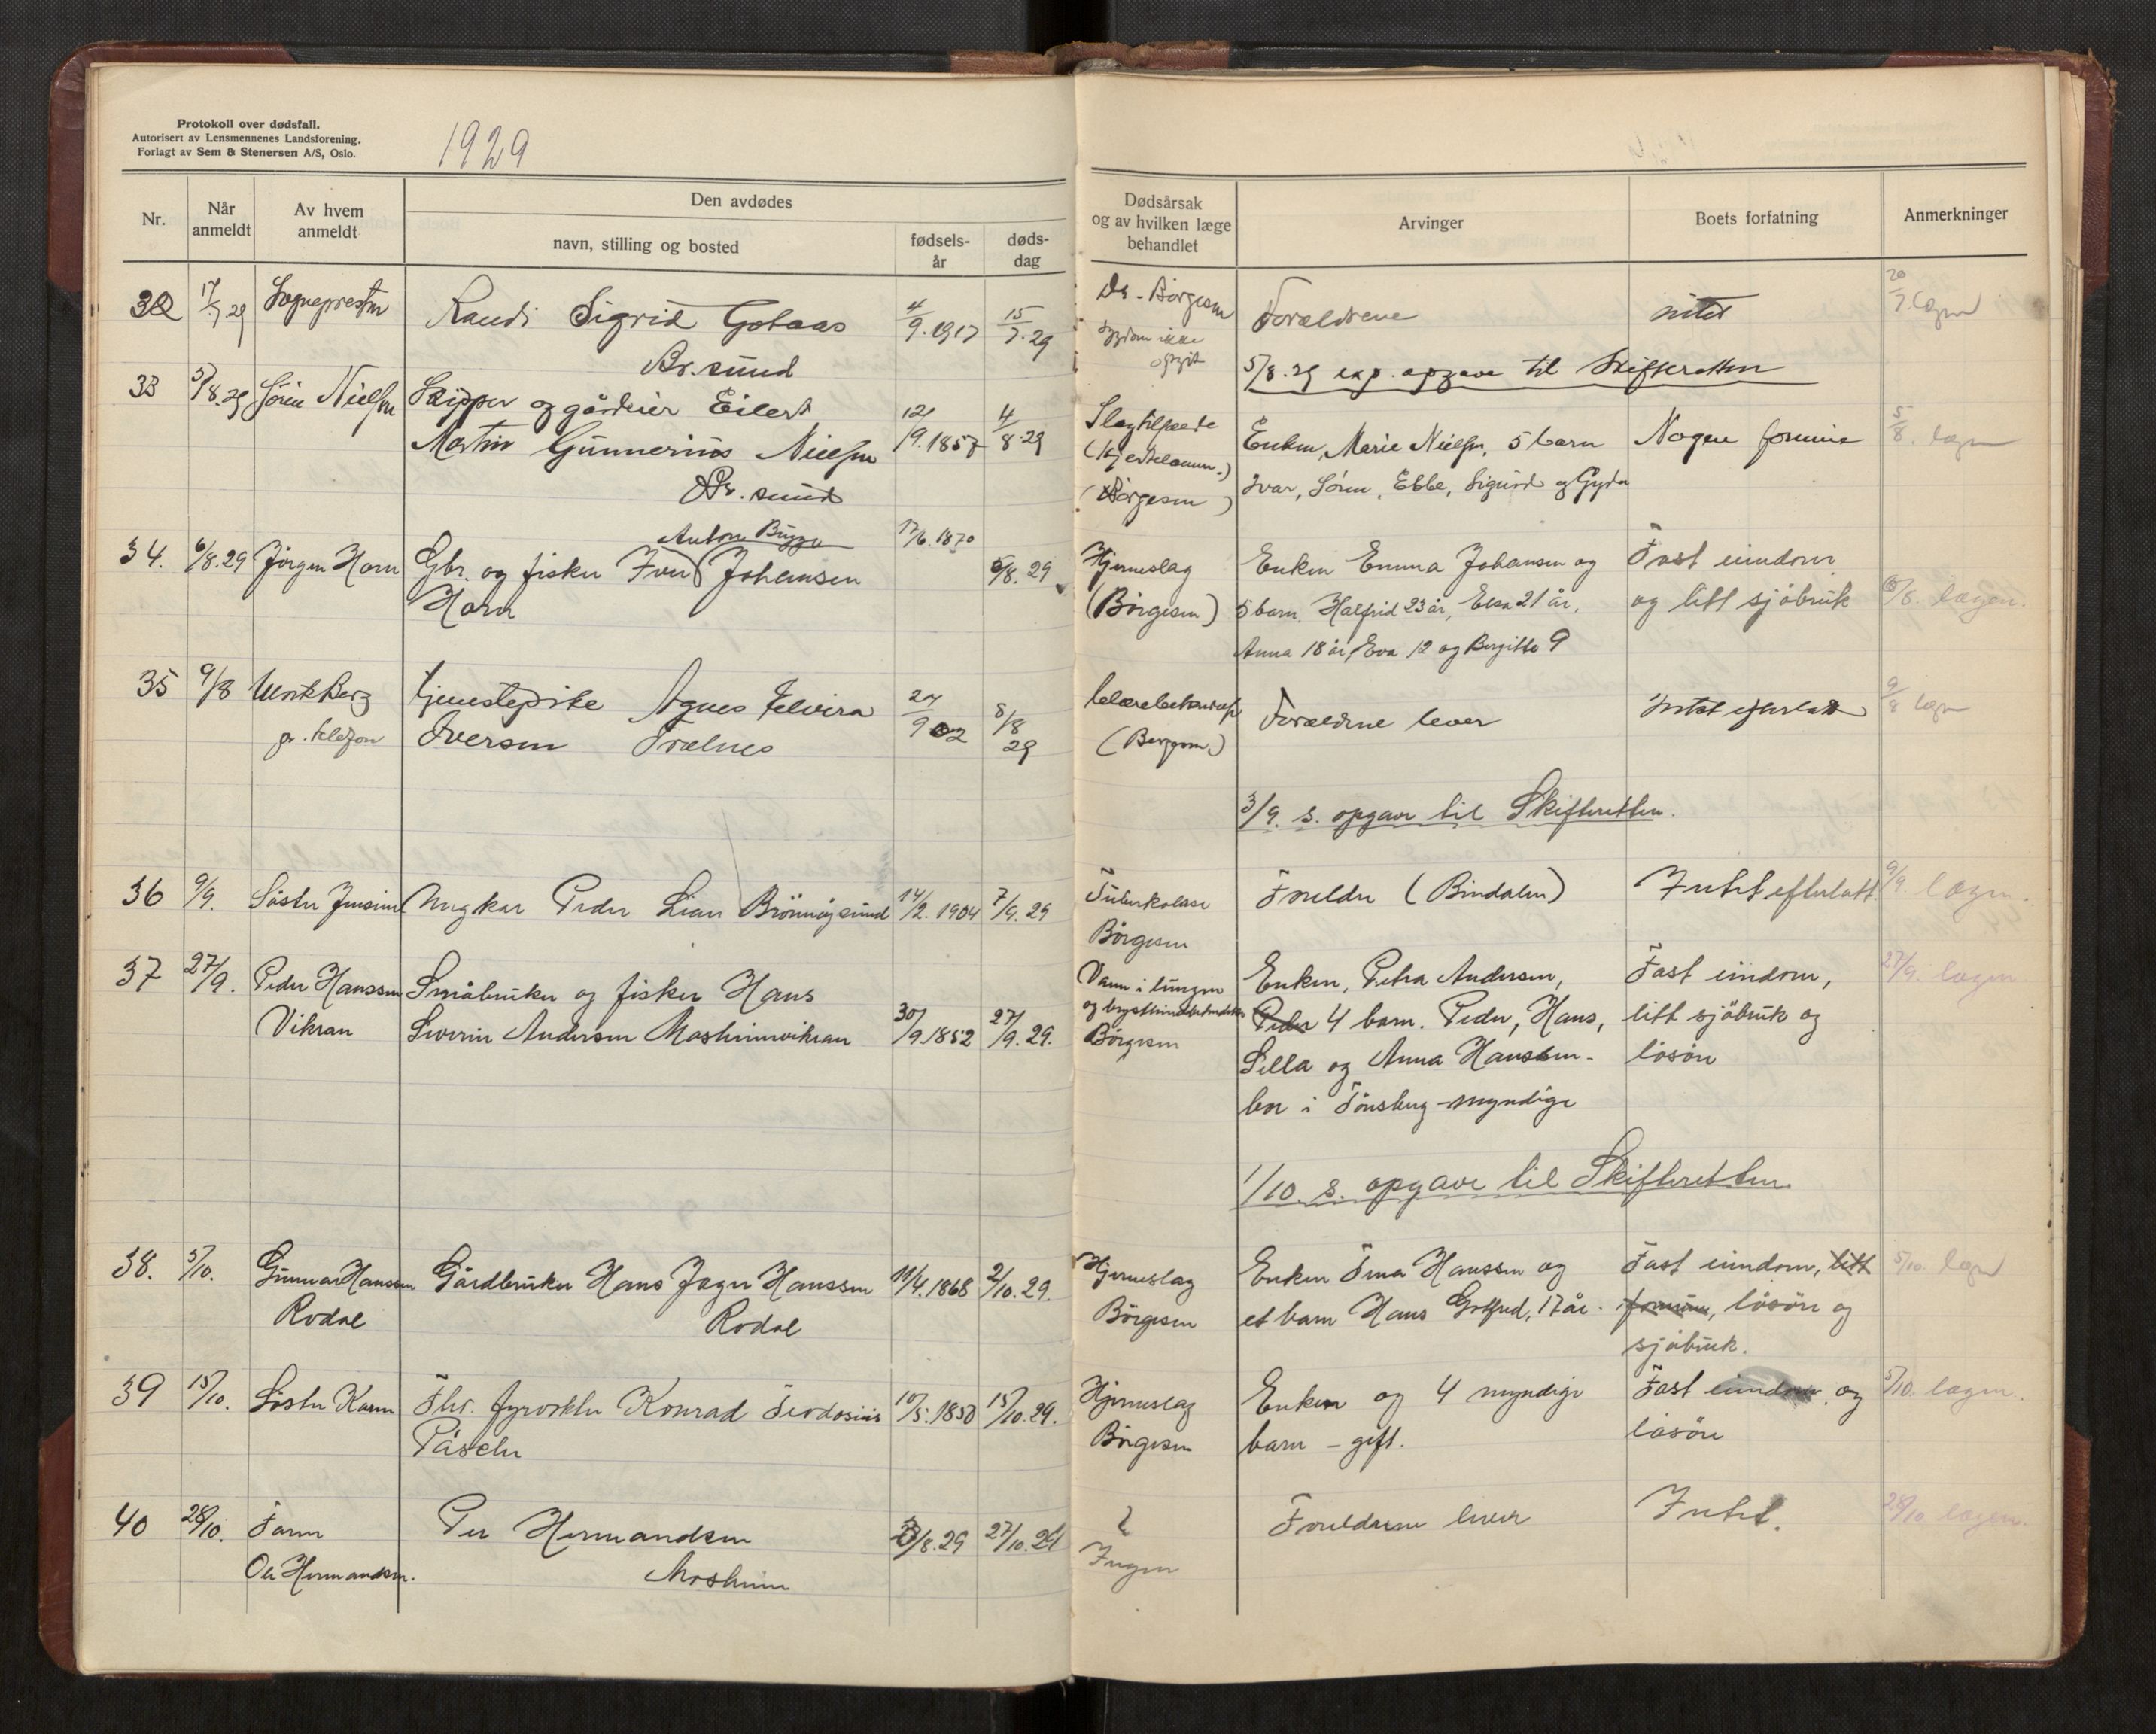 Protokoll over dødsfall.
Autorisert av Lensmennenes Landsforening.
Forlagt av Sem & Stenersen A/S, Oslo.
1929
Nr.
Når anmeldt
Av hvem anmeldt
Den avdødes
navn, stilling og bosted
fødselsår
dødsdag
Dødsårsak og av hvilken læge behandlet
Arvinger
Boets forfatning
Anmerkninger
32 17/7 29 Sognepresten Randi Sigrid Gotaas 4/9.1917 15/7.29 Dr. Børgesen Forældrene intet 20/7. lægen
Br.sund sygdom ikke opgit
5/8.29 exp. opgave til Skifteretten
33 5/8.29 Sören Nielsen Skipper og gårdeier Eilert 12/9.1857 4/8.29 Slagtilfælde Enken, Marie Nielsen, 5 barn Nogen formue 5/8. lægen
Martin Gunnerius Nielsen (Børgesen) Ivar, Sören, Ebbe, Sigurd og Gyda
Br.sund
Anton Bugge 17/6.1870
34. 6/8.29 Jörgen Horn Gbr. og fisker Iver Johansen 5/8.29 Hjerneslag Enken Emma Johansen og Fast eiendom
Horn (Börgesen) 5 barn. Halfrid 23 år, Elsa 21 år, og litt sjöbruk 6/8. lægen.
Anna 18 år, Eva 12 og Bergitte 9
35 9/8 Ulrik Berg tjenestepike Agnes Elvira 24/9 02 8/8 29 Forældrene lever Intet efterlatt 9/8 lægen
pr. telefon Iversen Trælnes
3/9. s. opgave til Skifteretten.
36 9/9. Söster Jensine Ungkar Peder Lian Brönnöysund 14/2.1904 7/9.29 Tuberkulose Foreldre (Bindalen) Intet efterlatt. 9/9. lægen.
Börgesen
37 27/9. Peder Hanssen Småbruker og fisker Hans Vann i lungen Enken, Petra Andersen, Fast eiendom, 27/9. lægen
Vikran Severin Andersen Mosheimvikran 30/9.1852 27/9.29. Börgesen Peder 4 barn. Peder, Hans, litt sjöbruk og
Sella og Anna Hanssen - lösöre
bor i Tönsberg - myndige
1/10. s. opgave til Skifteretten.
38. 5/10. Gunnar Hanssen Gårdbruker Hans Jager Hanssen 11/4.1868 2/10.29. Hjerneslag Enken Tina Hanssen og Fast eiendom, litt 5/10. lægen
Rodal Rodal Börgesen et barn Hans Gotfred, 17 år. formue, lösöre og
sjöbruk.
39 15/10. Söster Karen Fhv. fyrvokter Konrad Teodosius 10/5.1850 15/10.29. Hjerneslag Enken og 4 myndige Fast eiendom og 5/10. lægen.
Påsche Börgesen barn - gift. lösöre
40 28/10. Faren Per Hermandsen 3/8.29 27/10.29 ? Foreldrene lever Intet. 28/10. lægen.
Ole Hermandsen. Mosheim Ingen